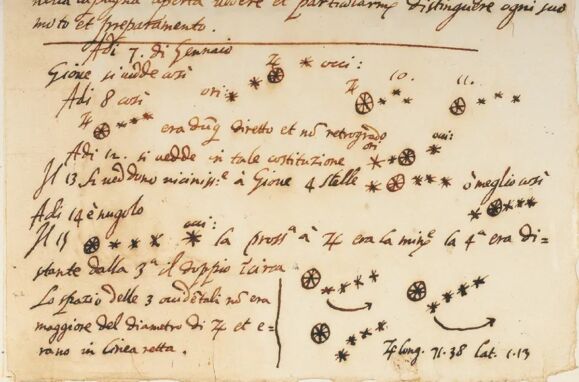 nella campagna aperta avere et particularmᵉ distinguere ogni suo
moto et preparamento.
Adi 7. di Gennaio
Gione si vedde così
♃ occi:
ori:
Adi 8 così
♃ 10. 11.
♃ era dūq diretto et nō retrogrado
Adi 12. si vedde in tale costituzione
ori
occi:
Il 13 si veddono vicinissᵉ à Gioue 4 stelle
ò meglio così
Adi 14 è nugolo
Il 15
occi:
la prossᵃ à ♃ era la minᵉ la 4ᵃ era di-
stante dalla 3ᵃ il doppio circa
Lo spazio delle 3 occidētali nō era
maggiore del diametro di ♃ et e-
rano in linea retta.
♃ long. 71.38 lat. 1.13